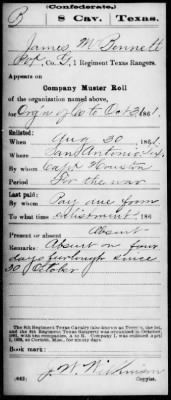 (Confederate.)
B 8 Cav. Texas.
James M Bonnett
Pvt, Co. G, 1 Regiment Texas Rangers.
Appears on
Company Muster Roll
of the organization named above,
for Org'n of Co to Oct 31, 1861.
Enlisted:
When Aug 30, 1861.
Where San Antonio Tex.
By whom Houston
Period For the war
Last paid:
By whom Pay due from
To what time enlistment, 186
Present or absent Absent
Remarks: Absent on four
days furlough since
30 October
The 8th Regiment Texas Cavalry (also known as Terry's, the 1st,
and the 8th Regiment Texas Rangers) was organized in October,
1861, with ten companies, A to K.
Book mark:
(642) Copyist.